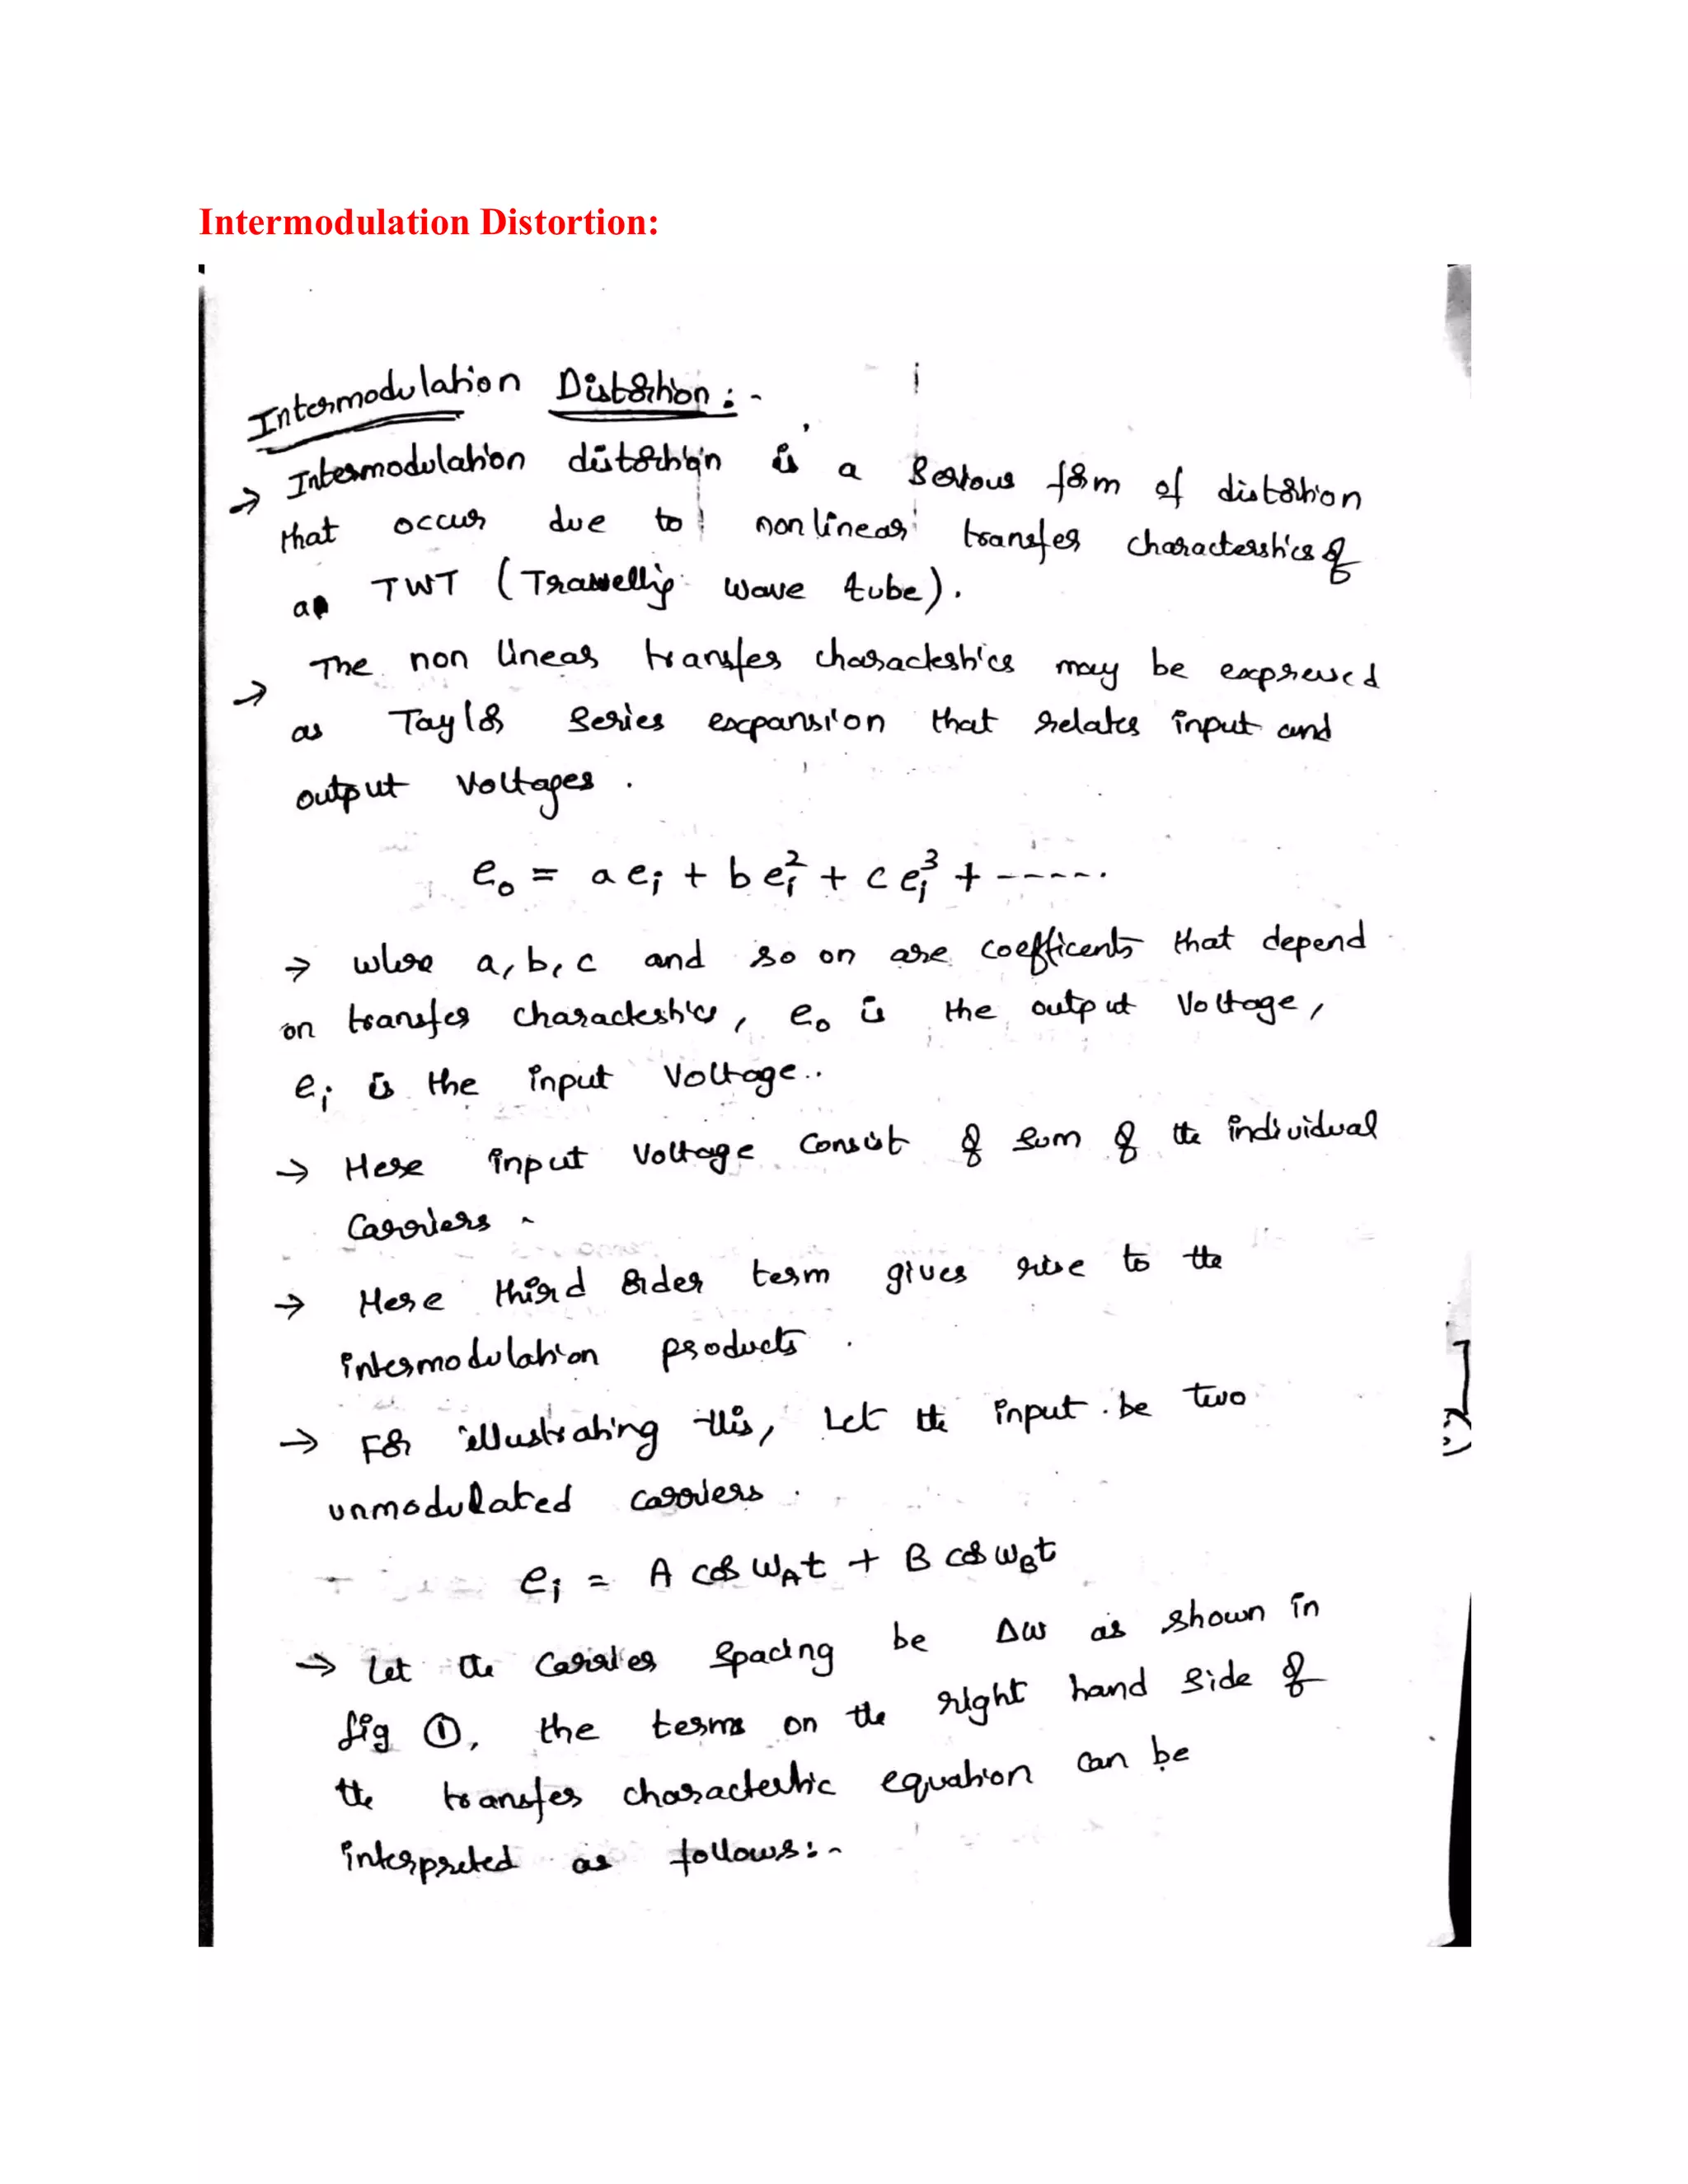 Intermodulation Distortion:
Intermodulation Distortion :-
→ Intermodulation distortion is a serious form of distortion
that occur due to non linear transfer characterstics of
a TWT (Travelling wave tube).
→ The non linear transfer characterstics may be expressed
as Taylor series expansion that relates input and
output voltages.
e₀ = a eᵢ + b eᵢ² + c eᵢ³ + -----.
→ where a, b, c and so on are coefficents that depend
on transfer characterstics, e₀ is the output voltage,
eᵢ is the input voltage..
→ Here input voltage consist of sum of the individual
carriers.
→ Here third order term gives rise to the
intermodulation products.
→ For illustrating this, Let the input be two
unmodulated carriers.
eᵢ = A cos ω_A t + B cos ω_B t
→ Let the carrier spacing be Δω as shown in
fig ①, the terms on the right hand side of
the transfer characterstic equation can be
interpreted as follows:-